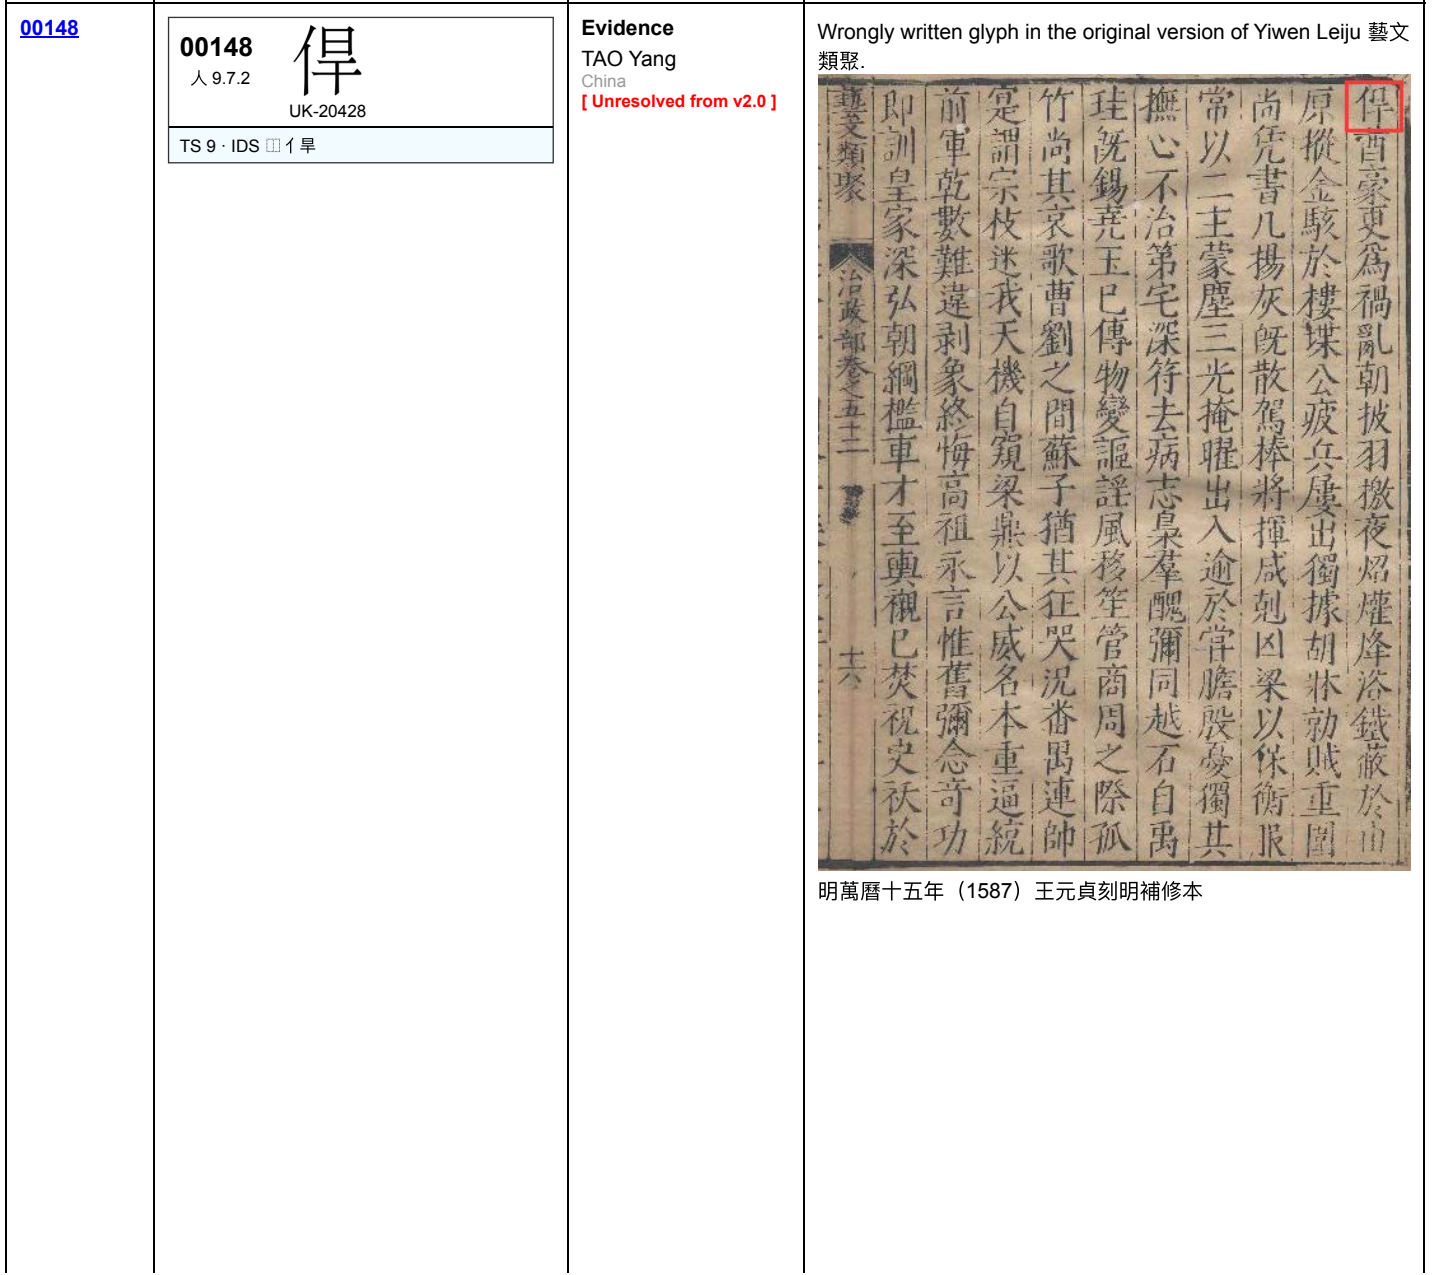 00148
00148
人 9.7.2
⿰亻旱
UK-20428
TS 9 · IDS ⿰亻旱
Evidence
TAO Yang
China
[ Unresolved from v2.0 ]
Wrongly written glyph in the original version of Yiwen Leiju 藝文
類聚.
⿰亻旱酋豪更爲禍亂朝披羽檄夜炤爟烽洛鐵蔽於山
原摐金駭於樓堞公疲兵屢出獨據胡牀勍賊重圍
尚凭書几揚灰旣散駕棒將揮咸剋凶梁以保衡服
常以二主蒙塵三光掩曜出入逾於嘗膽殷憂獨其
撫心不治第宅深符去病志梟羣醜彌同越石自禹
珪旣錫堯玉巳傳物變謳謡風移笙管商周之際孤
竹尚其哀歌曹劉之間蘇子猶其狂哭況番禺連帥
寔謂宗枝迷我天機自窺梁鼎以公威名本重逼統
前軍乾數難違剥象終悔高祖永言惟舊彌念奇功
即訓皇家深弘朝綱檻車才至輿櫬巳焚祝史祅於
藝文類聚
治政部卷之五十二
十六
明萬曆十五年（1587）王元貞刻明補修本